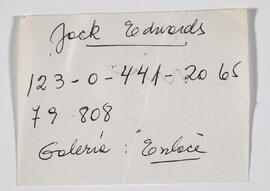 Jack Edwards
123-0-441-20 65
79 808
Galería : "Enlace"